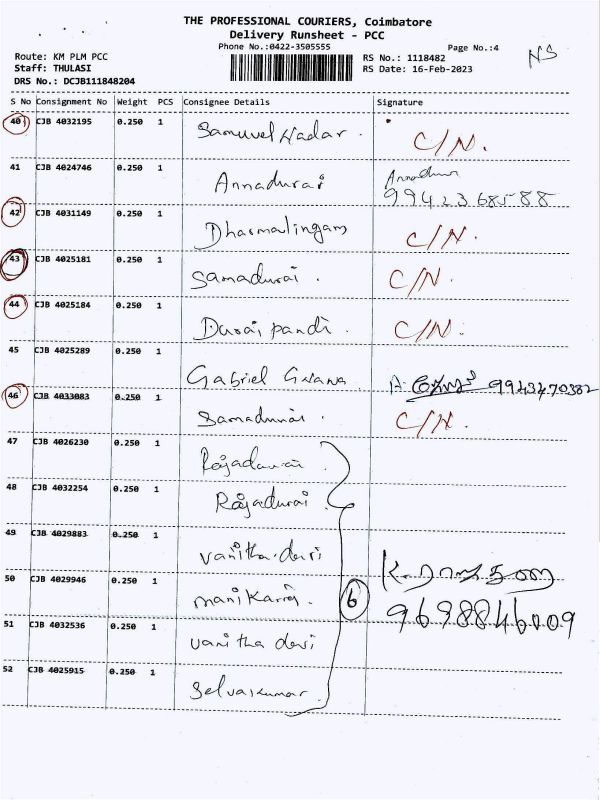 THE PROFESSIONAL COURIERS, Coimbatore
Delivery Runsheet - PCC
Phone No.:0422-3505555 Page No.:4
Route: KM PLM PCC RS No.: 1118482 NS
Staff: THULASI RS Date: 16-Feb-2023
DRS No.: DCJB111848204
S No Consignment No Weight PCS Consignee Details Signature
40 CJB 4032195 0.250 1 Samuvel Nadar. C/N.
41 CJB 4024746 0.250 1 Annadurai Annadurai
9942368588
42 CJB 4031149 0.250 1 Dharmalingam C/N.
43 CJB 4025181 0.250 1 Samadurai. C/N.
44 CJB 4025184 0.250 1 Durai pandi. C/N.
45 CJB 4025289 0.250 1 Gabriel Gnana 9943470382
46 CJB 4033083 0.250 1 Samadurai C/N.
47 CJB 4026230 0.250 1 Rajadurai
48 CJB 4032254 0.250 1 Rajadurai
49 CJB 4029883 0.250 1 vanitha devi
50 CJB 4029946 0.250 1 6
51 CJB 4032536 0.250 1 vanitha devi 9698846009
52 CJB 4025915 0.250 1 Selvakumar